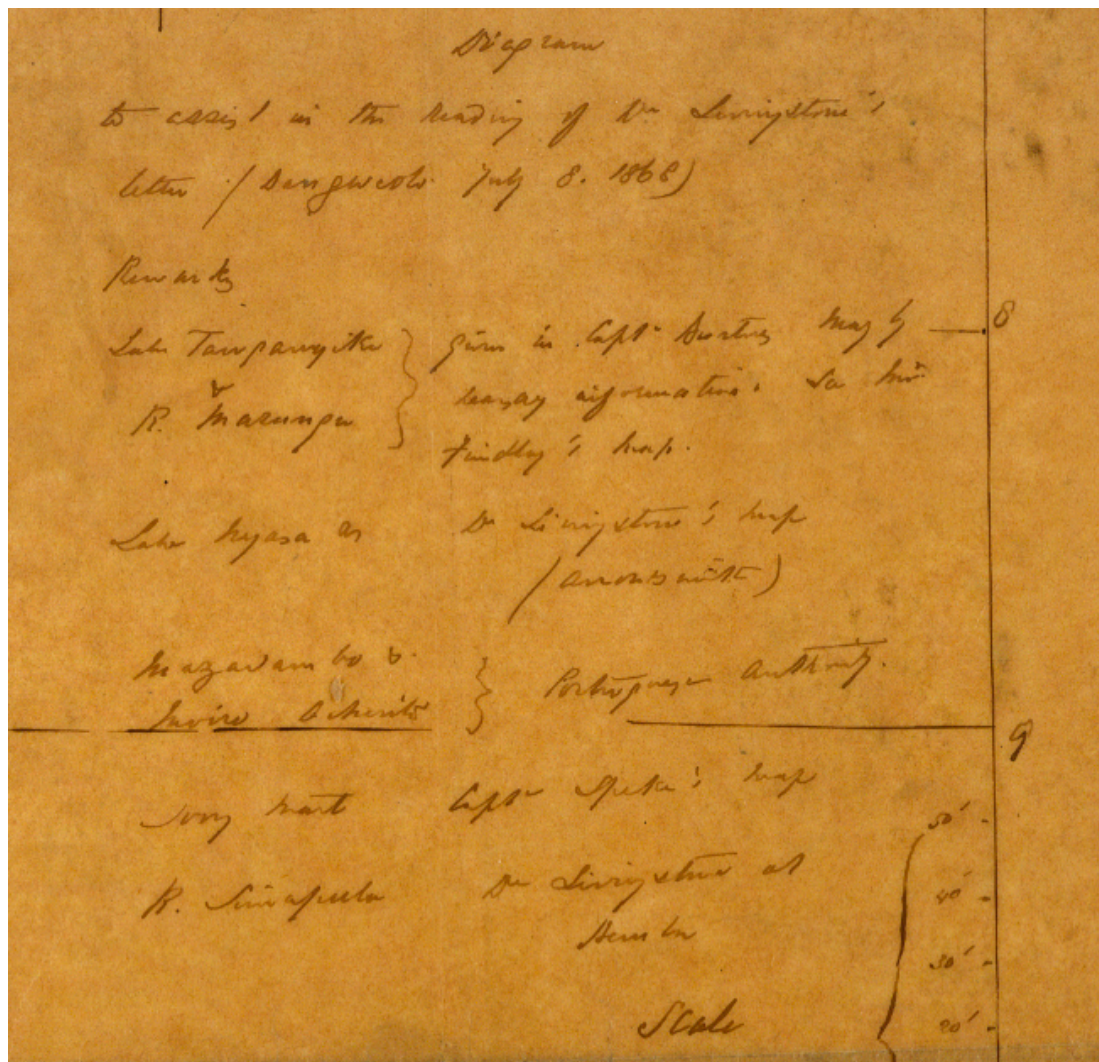 Diagram
to assist in the reading of Dr Livingstone's
letter (Bangweolo July 8. 1868)
Remarks
Lake Tanganyika
&
R. Marungu
given in Capt Burton's Map by
hearsay information.
Findlay's map.
Lake Nyasa as
Dr Livingstone's map
(Arrowsmith)
Portuguese Authority.
Ivory Mart
Capt Speke's map
R.
Dr Livingstone at
Scale
8
9
50'
40'
30'
20'